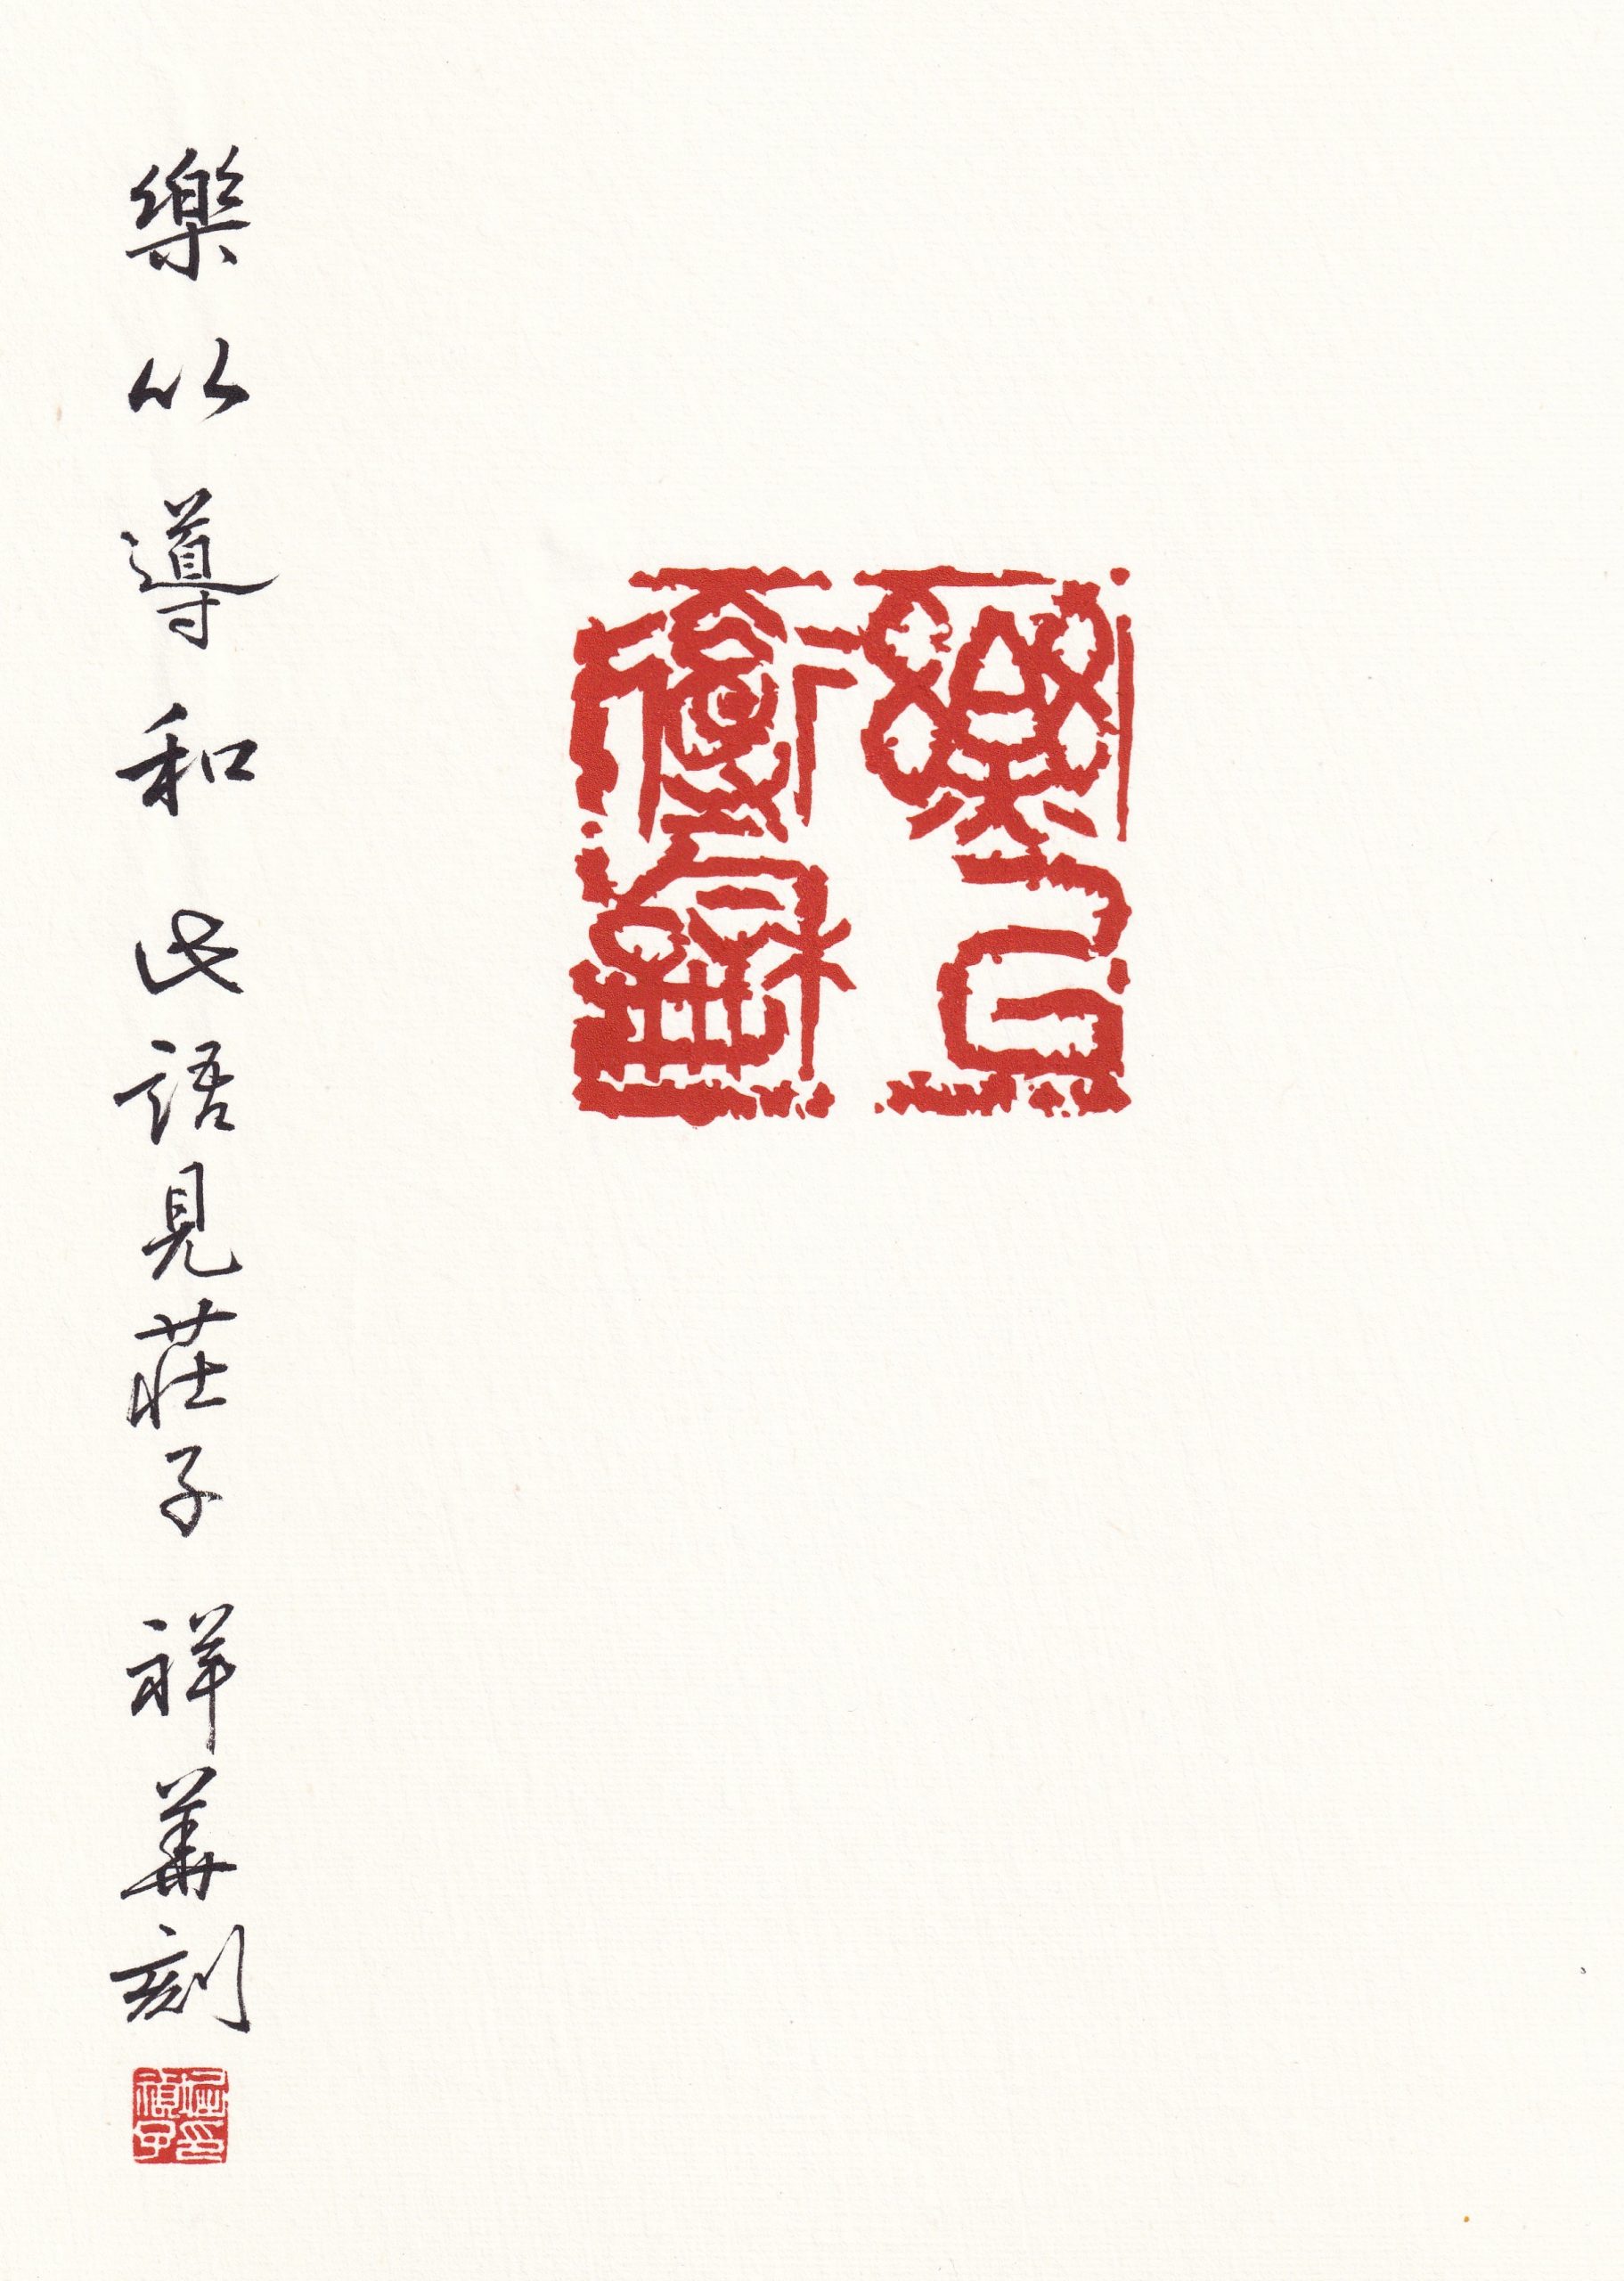 樂㠯
導龢
樂以導和 此語見莊子 祥華刻